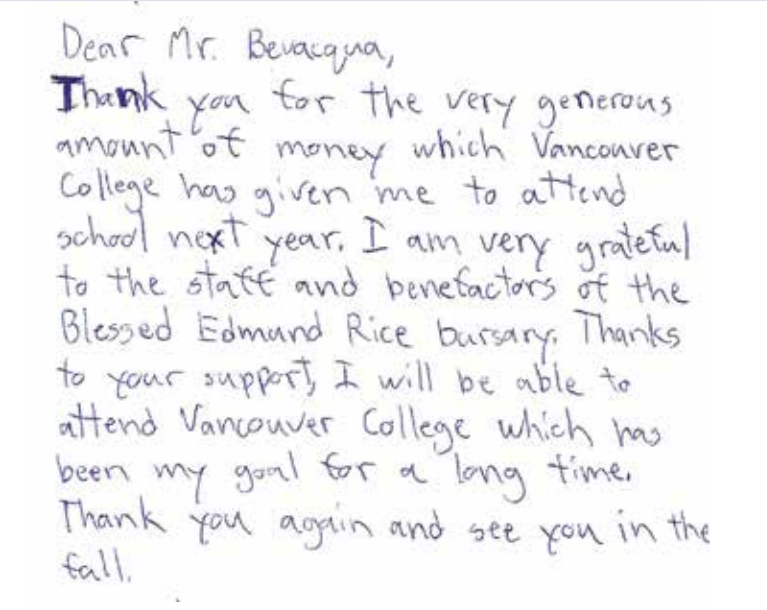 Dear Mr. Bevacqua,
Thank you for the very generous
amount of money which Vancouver
College has given me to attend
school next year. I am very grateful
to the staff and benefactors of the
Blessed Edmund Rice bursary. Thanks
to your support, I will be able to
attend Vancouver College which has
been my goal for a long time.
Thank you again and see you in the
fall.